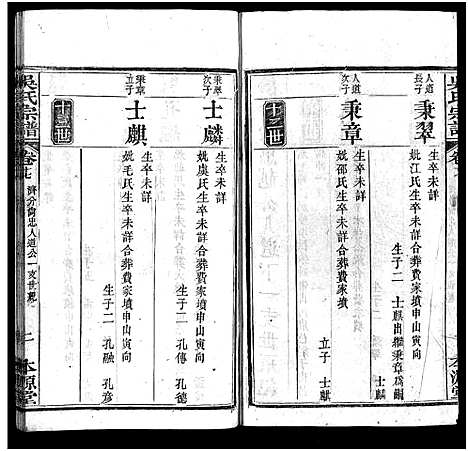 吳氏宗譜
人道長子
秉翠
生卒未詳
妣江氏生卒未詳合葬費家墳申山寅向
生子二
士麒出繼秉章為嗣
士麟
人道次子
秉章
生卒未詳
妣邵氏生卒未詳合葬費家墳
立子 士麒
十二世
本源堂
秉翠次子
士麟
生卒未詳
妣虞氏生卒未詳合葬費家墳申山寅向
生子二 孔傳 孔德
秉章立子
士麒
生卒未詳
妣毛氏生卒未詳合葬費家墳申山寅向
生子二 孔融 孔彥
十三世
吳氏宗譜
卷七
濟分尚忠人道公一支世系
二
本源堂